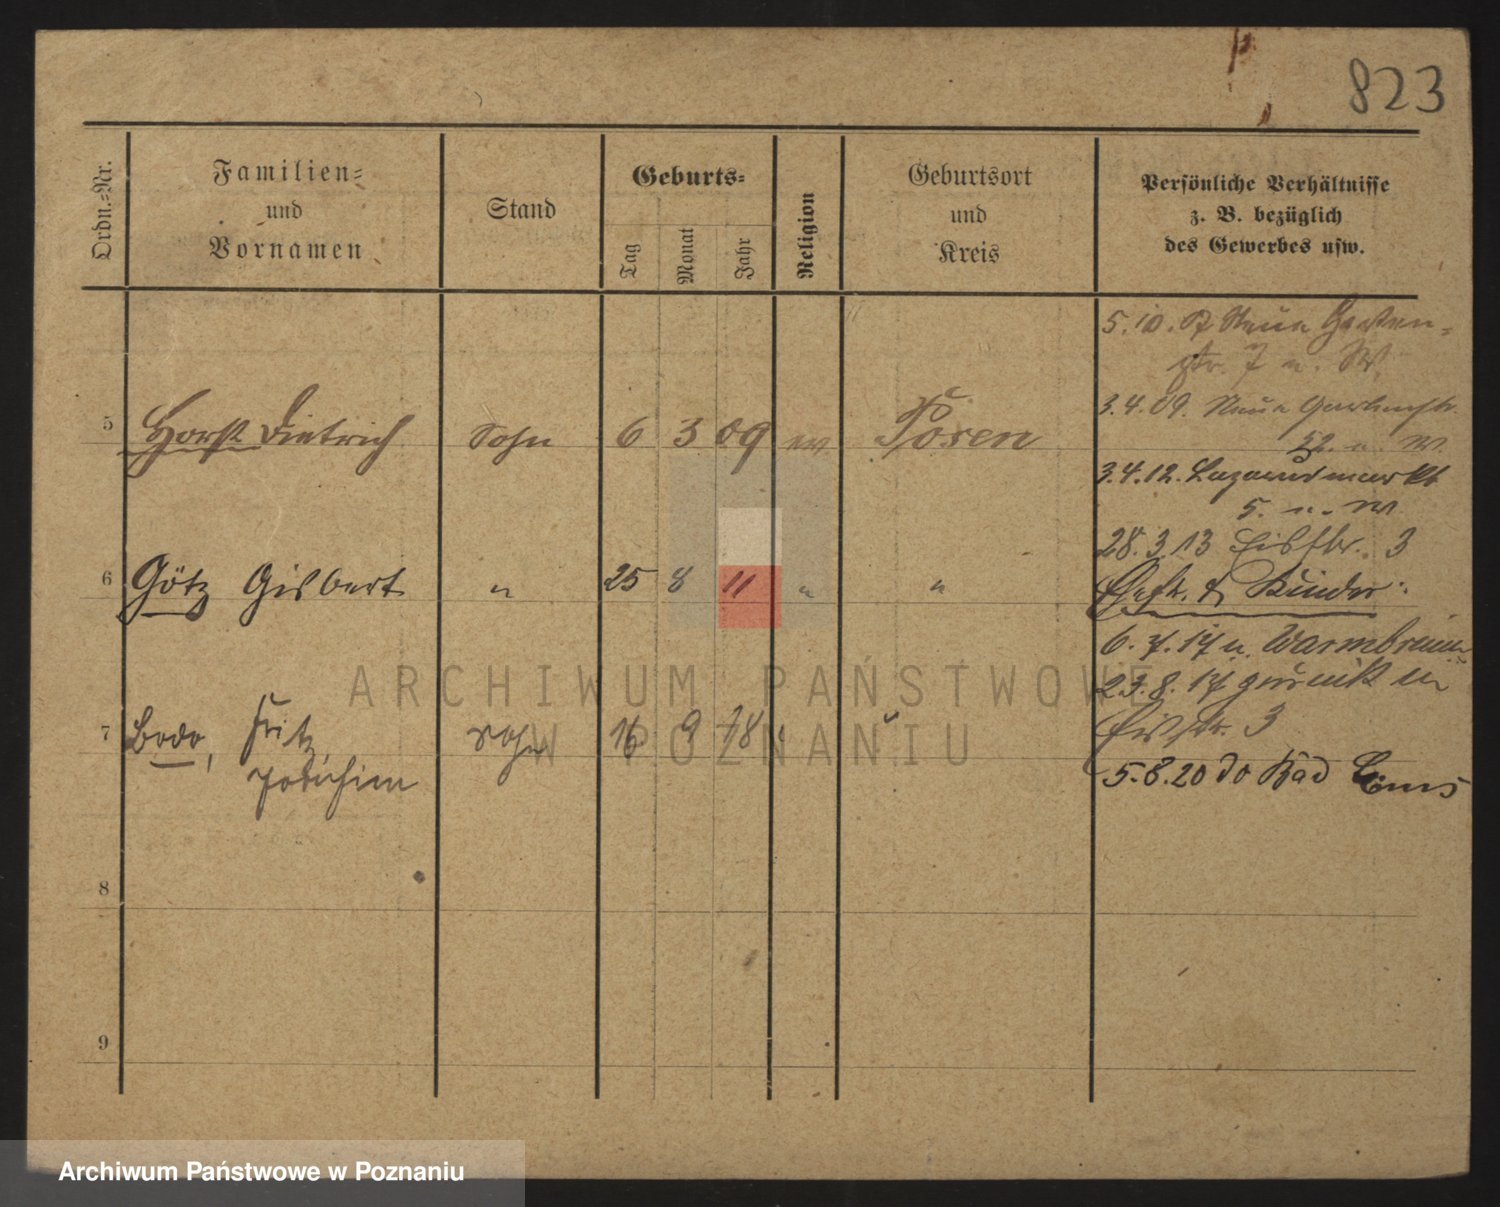 823
Ordn.-Nr.
Familien-
und
Vornamen
Stand
Geburts-
Tag
Monat
Jahr
Religion
Geburtsort
und
Kreis
Persönliche Verhältnisse
z. B. bezüglich
des Gewerbes usw.
5 Horst Dietrich Sohn 6 3 09 ev Posen
6 Götz Gisbert " 25 8 11 " "
7 Bodo, Fritz Sohn 16 9 18 "
Joachim
8
9
5.10.07 Neue Garten-
str. 7 u. W.
3.4.09. Neue Gartenstr.
52. n. W.
3.4.12. Lazarusmarkt
5. n. W
28.3.13 Eisstr. 3
Ehefr. & Kinder:
6.7.17 n. Warmbrunn
23.8.17 zurück in
Eisstr. 3
5.8.20 do Bad Ems
ARCHIWUM PAŃSTWOWE
W POZNANIU
Archiwum Państwowe w Poznaniu